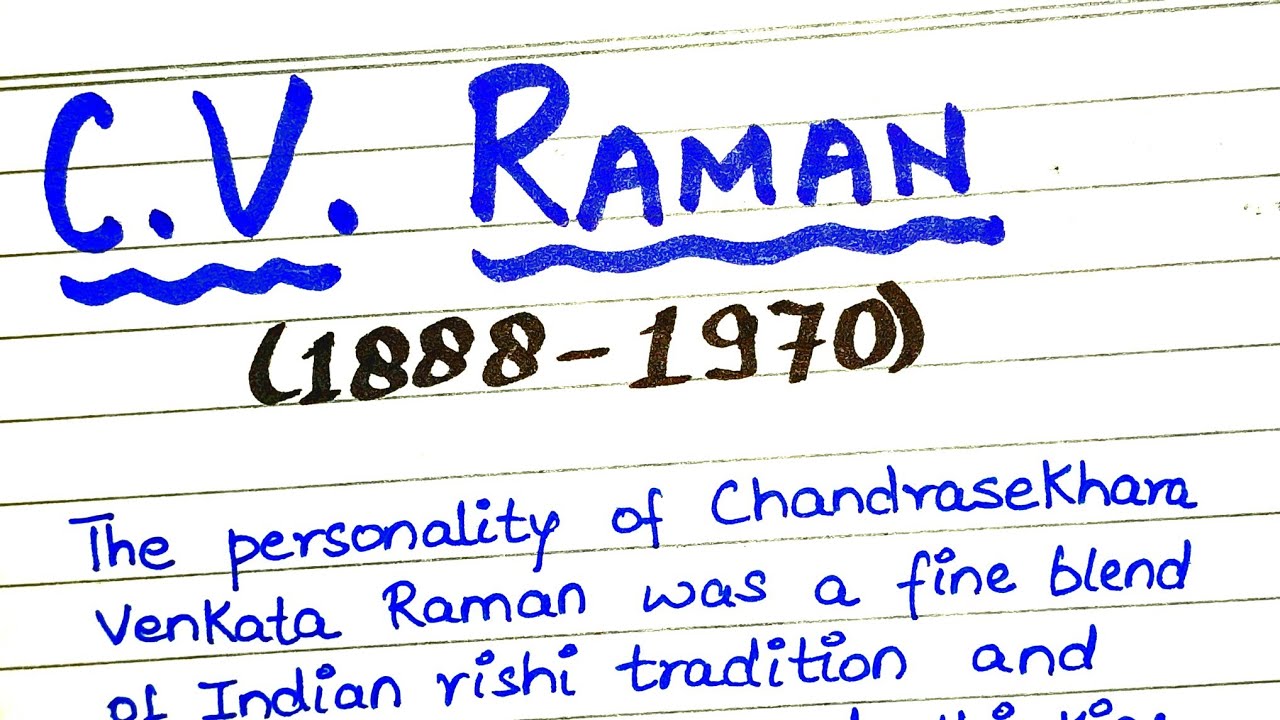 C.V. RAMAN
(1888-1970)
The personality of Chandrasekhara
Venkata Raman was a fine blend
of Indian rishi tradition and